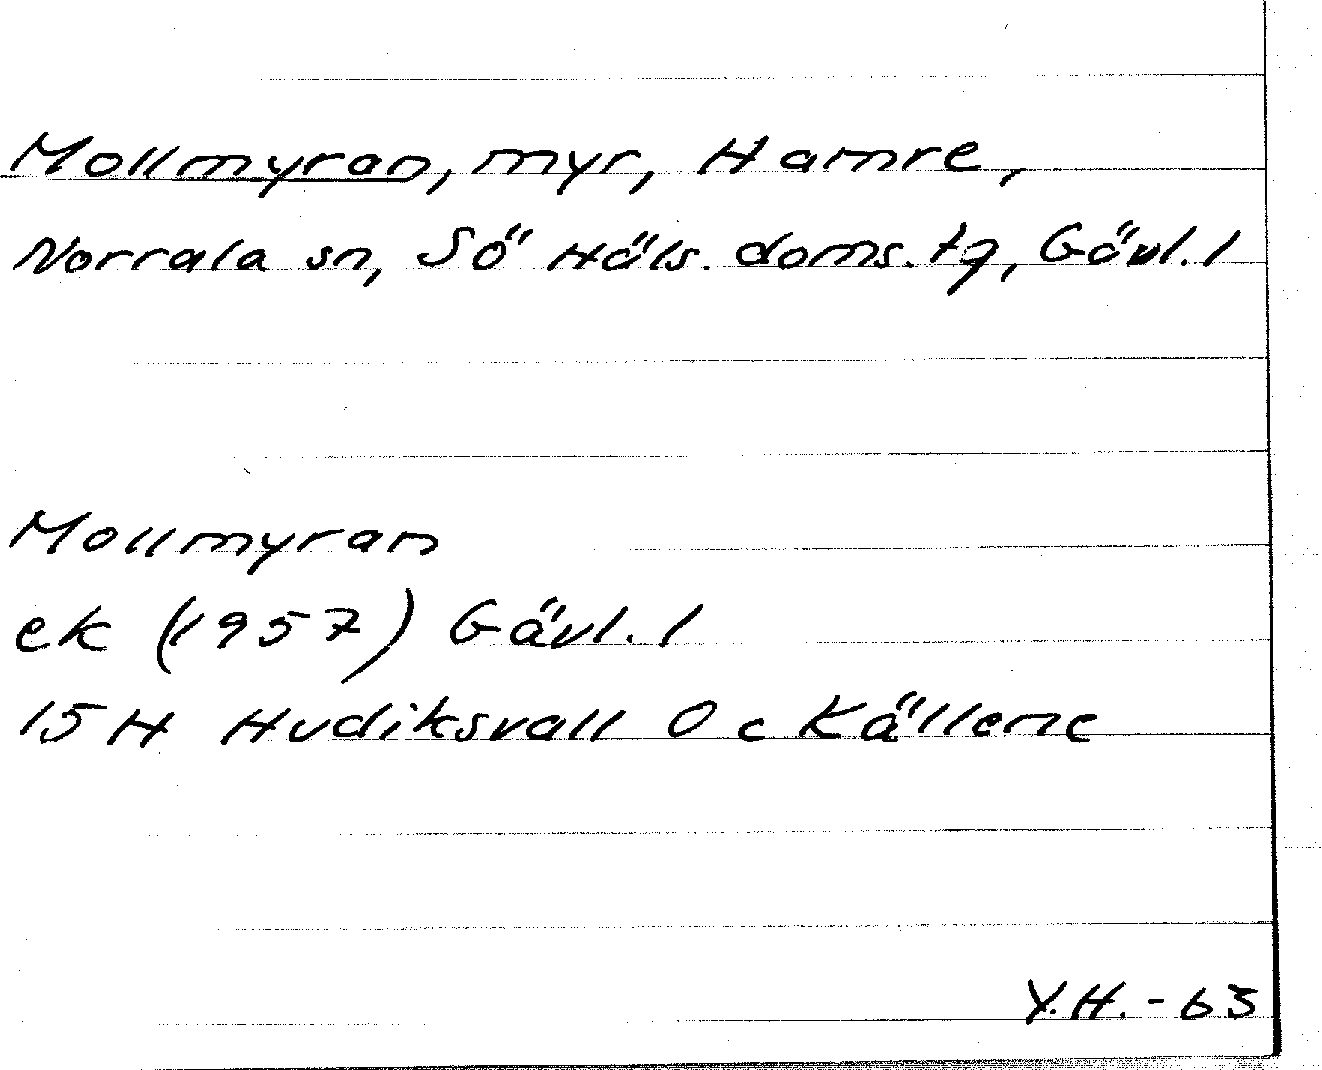 Mollmyran, myr, Hamre,
Norrala sn, Sö Häls. doms. tg, Gävl. l
Mollmyran
ek (1957) Gävl. l
15 H Hudiksvall O c Källene
Y.H. - 63